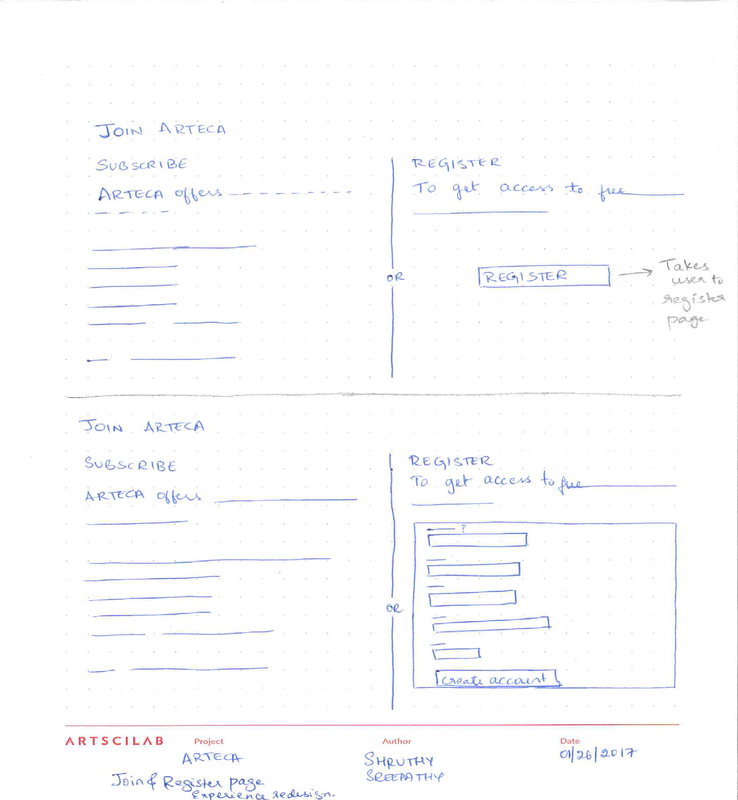 JOIN ARTECA
SUBSCRIBE
ARTECA offers
REGISTER
To get access to free
OR
REGISTER
Takes
user to
register
page
JOIN ARTECA
SUBSCRIBE
ARTECA offers
REGISTER
To get access to free
?
OR
create account
ARTSCILAB
Project
ARTECA
Join & Register page
Experience redesign.
Author
SHRUTHY
SREEPATHY
Date
01/26/2017